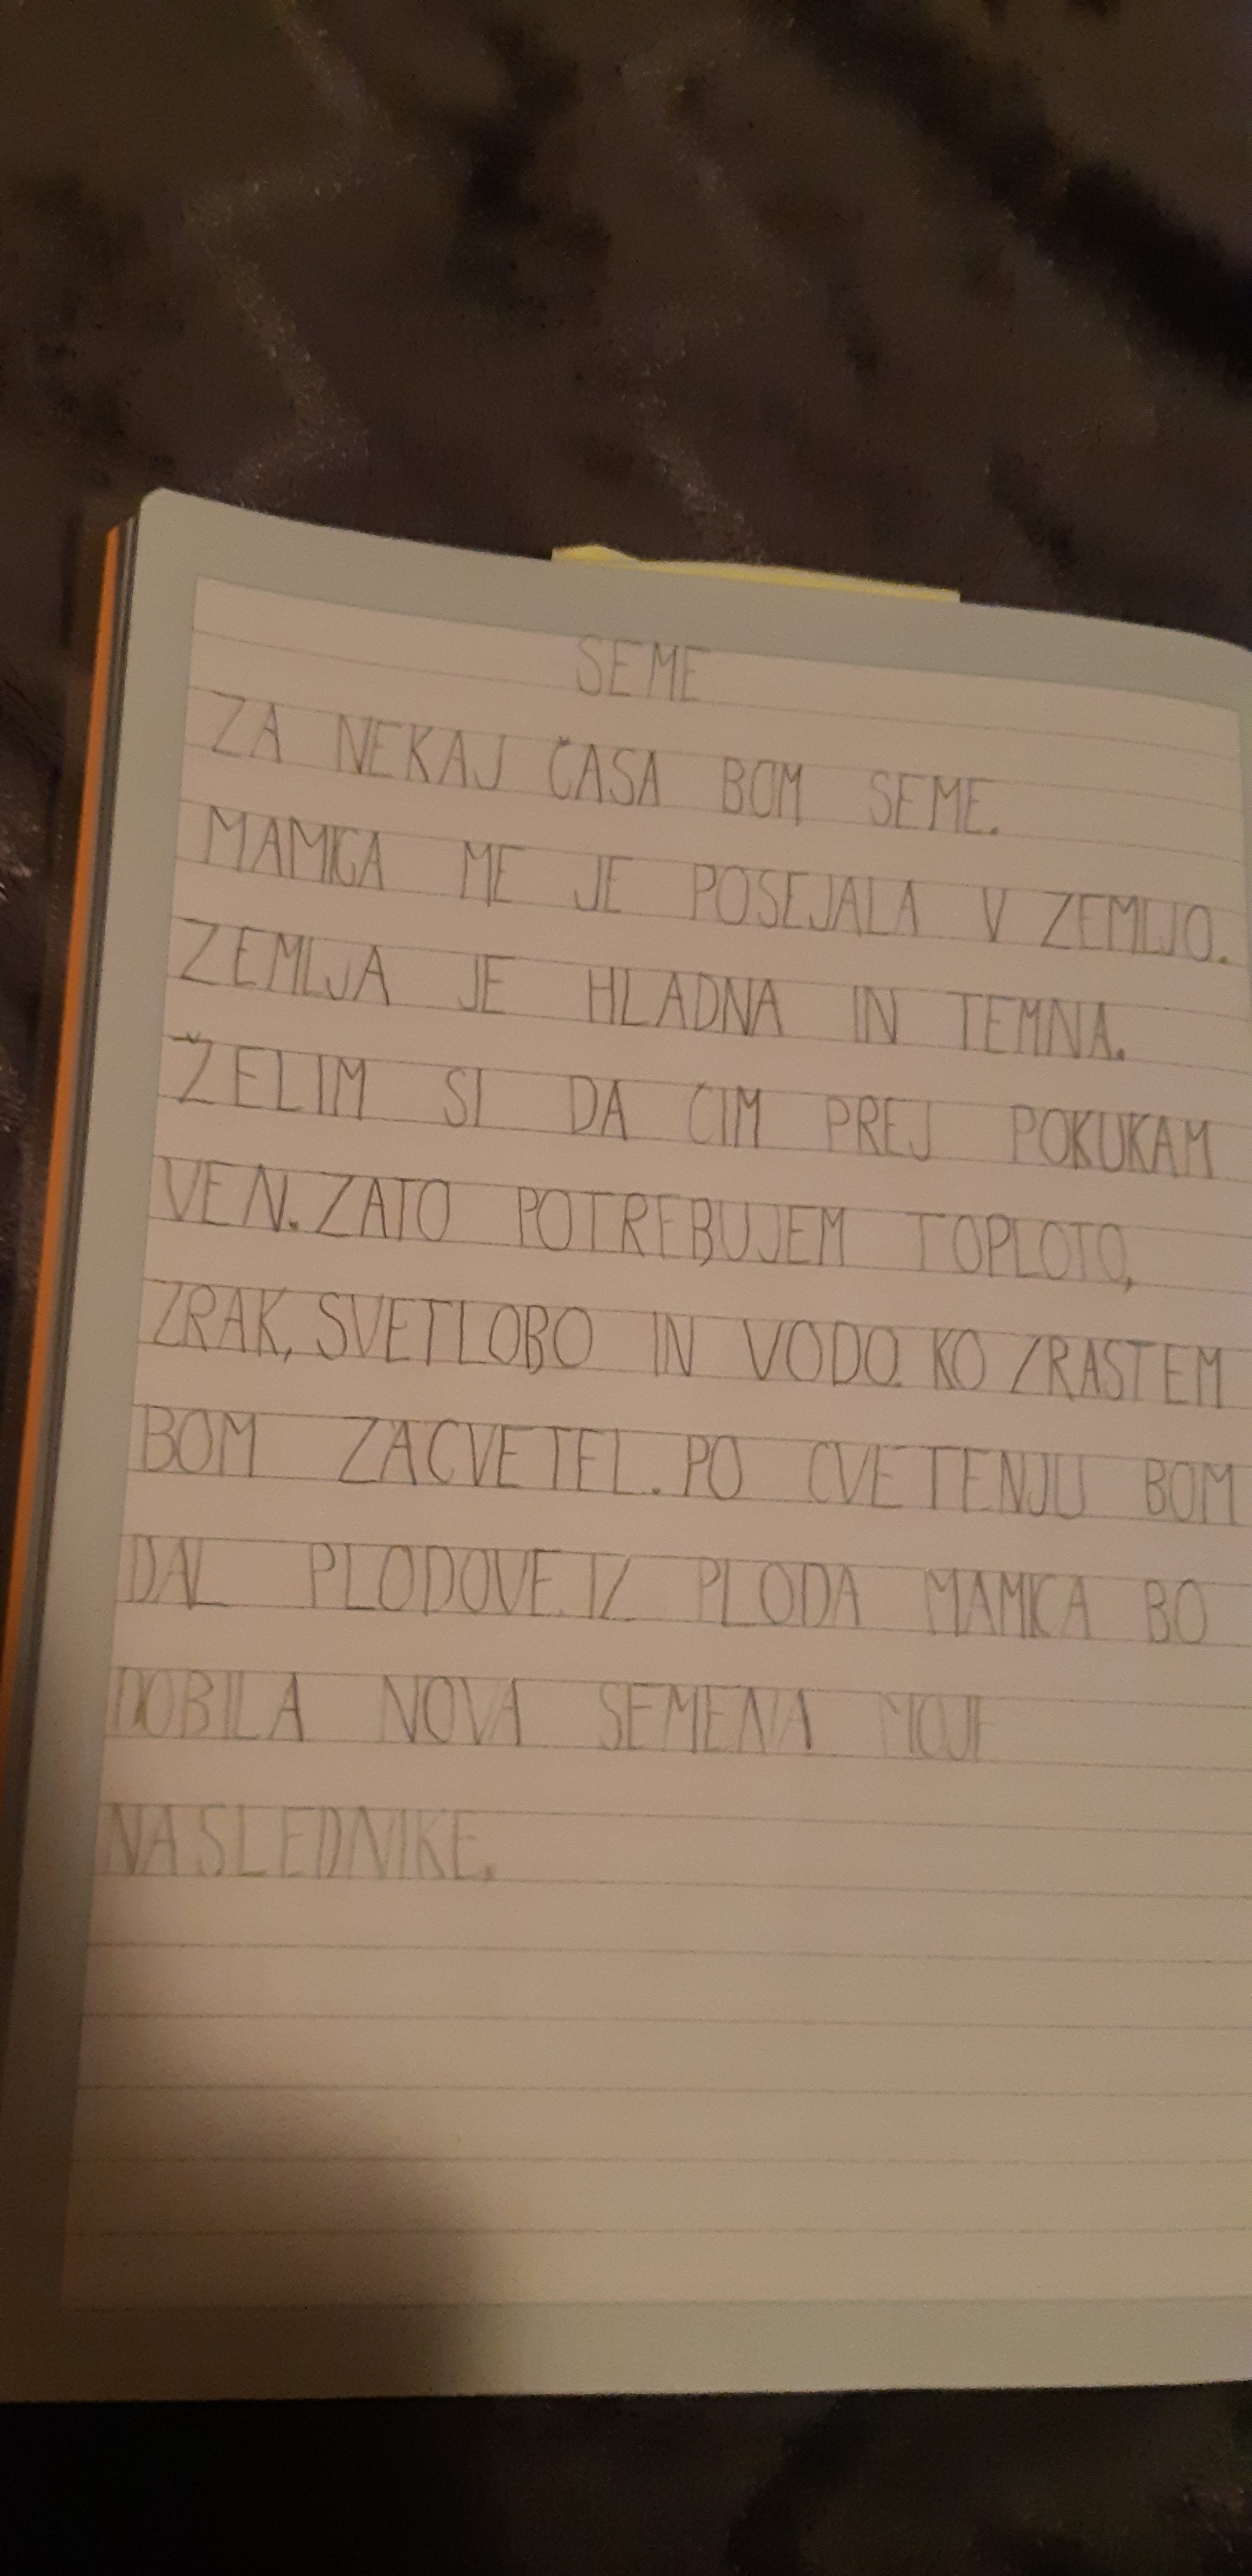 SEME
ZA NEKAJ ČASA BOM SEME.
MAMICA ME JE POSEJALA V ZEMLJO.
ZEMLJA JE HLADNA IN TEMNA.
ŽELIM SI DA ČIM PREJ POKUKAM
VEN. ZATO POTREBUJEM TOPLOTO,
ZRAK, SVETLOBO IN VODO. KO ZRASTEM
BOM ZACVETEL. PO CVETENJU BOM
DAL PLODOVE. IZ PLODA MAMICA BO
DOBILA NOVA SEMENA MOJE
NASLEDNIKE.